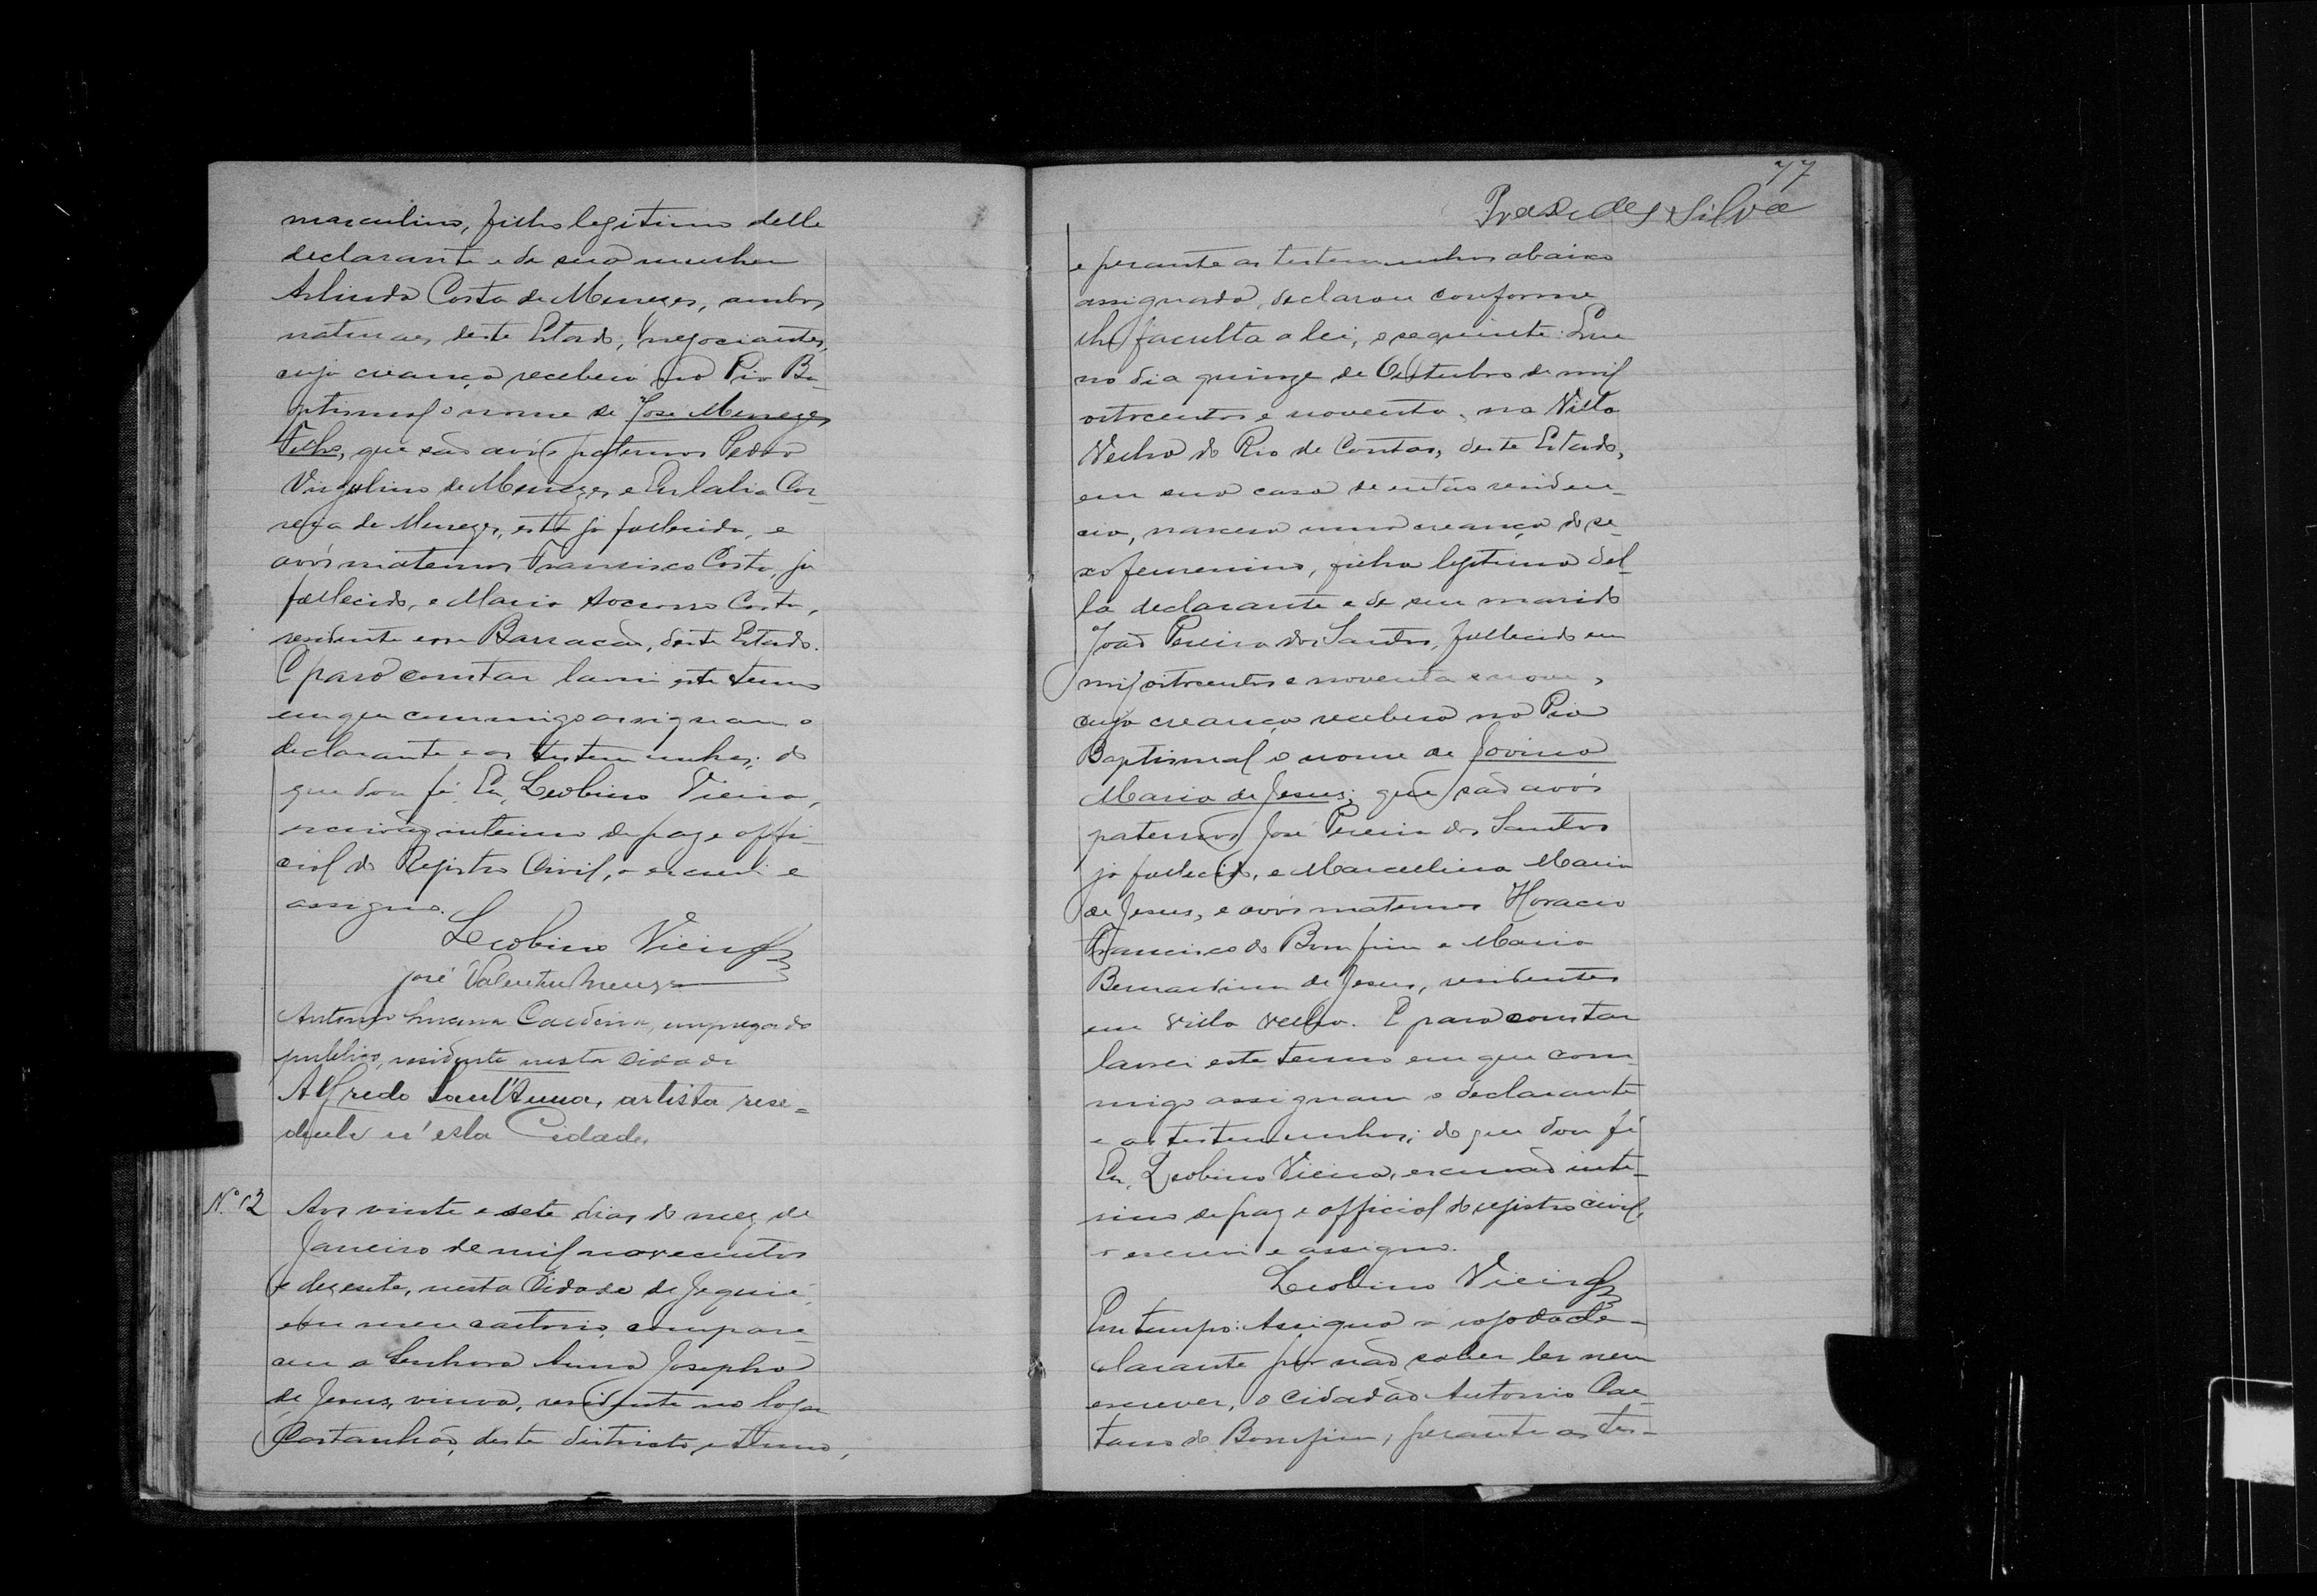 masculino, filho legitimo delle
declarante e de sua mulher
Arlinda Costa de Menezes, ambos
naturaes deste Estado, negociantes,
cuja creança receberá na Pia Ba-
ptismal o nome de José Menezes
Filho, que são avós paternos Pedro
Virgulino de Menezes e Eulalia Cor
reia de Menezes, esta já fallecida, e
avós maternos Francisco Costa, já
fallecido, e Maria Soccorro Costa,
residente em Barracão, deste Estado.
E para constar lavrei este termo
em que commigo assignam o
declarante e as testemunhas; do
que dou fé. Eu, Leobino Vieira,
escrivão interino de paz e offi-
cial do Registro Civil, o escrevi e
assigno.
Leobino Vieira
José Valentim Menezes
Antonio Caldeira, empregado
publico, residente nesta cidade
Alfredo Sant'Anna, artista resi=
dente n'esta Cidade.
N.º 12 Aos vinte e sete dias do mez de
Janeiro de mil novecentos
e dezesete, nesta Cidade de Jequié,
em meu cartorio, compare-
ceu a Senhora Anna Josepha
de Jesus, viuva, residente no logar
Castanhão, deste districto e termo,
77
Praxedes Silva
e perante as testemunhas abaixo
assignadas, declarou conforme
lhe faculta a lei, o seguinte: Que
no dia quinze de Outubro de mil
oitocentos e noventa, na Villa
Velha do Rio de Contas, deste Estado,
em sua casa de então residen-
cia, nasceu uma creança do se-
xo femenino, filha legitima del-
la declarante e de seu marido
João Pereira dos Santos, fallecido em
mil oitocentos e noventa e nove,
cuja creança recebera na Pia
Baptismal o nome de Jovina
Maria de Jesus; que são avós
paternos José Pereira dos Santos
já fallecido, e Marcellina Maria
de Jesus, e avós maternos Horacio
Francisco do Bomfim e Maria
Bernardina de Jesus, residentes
em Villa Velha. E para constar
lavrei este termo em que com
migo assignam o declarante
e as testemunhas; do que dou fé
Eu, Leobino Vieira, escrivão inte-
rino de paz e official do registro civil,
o escrevi e assigno.
Leobino Vieira
Em tempo: Assigna a rogo da de-
clarante por não saber ler nem
escrever, o cidadão Antonio Cae-
tano do Bomfim, perante as tes-